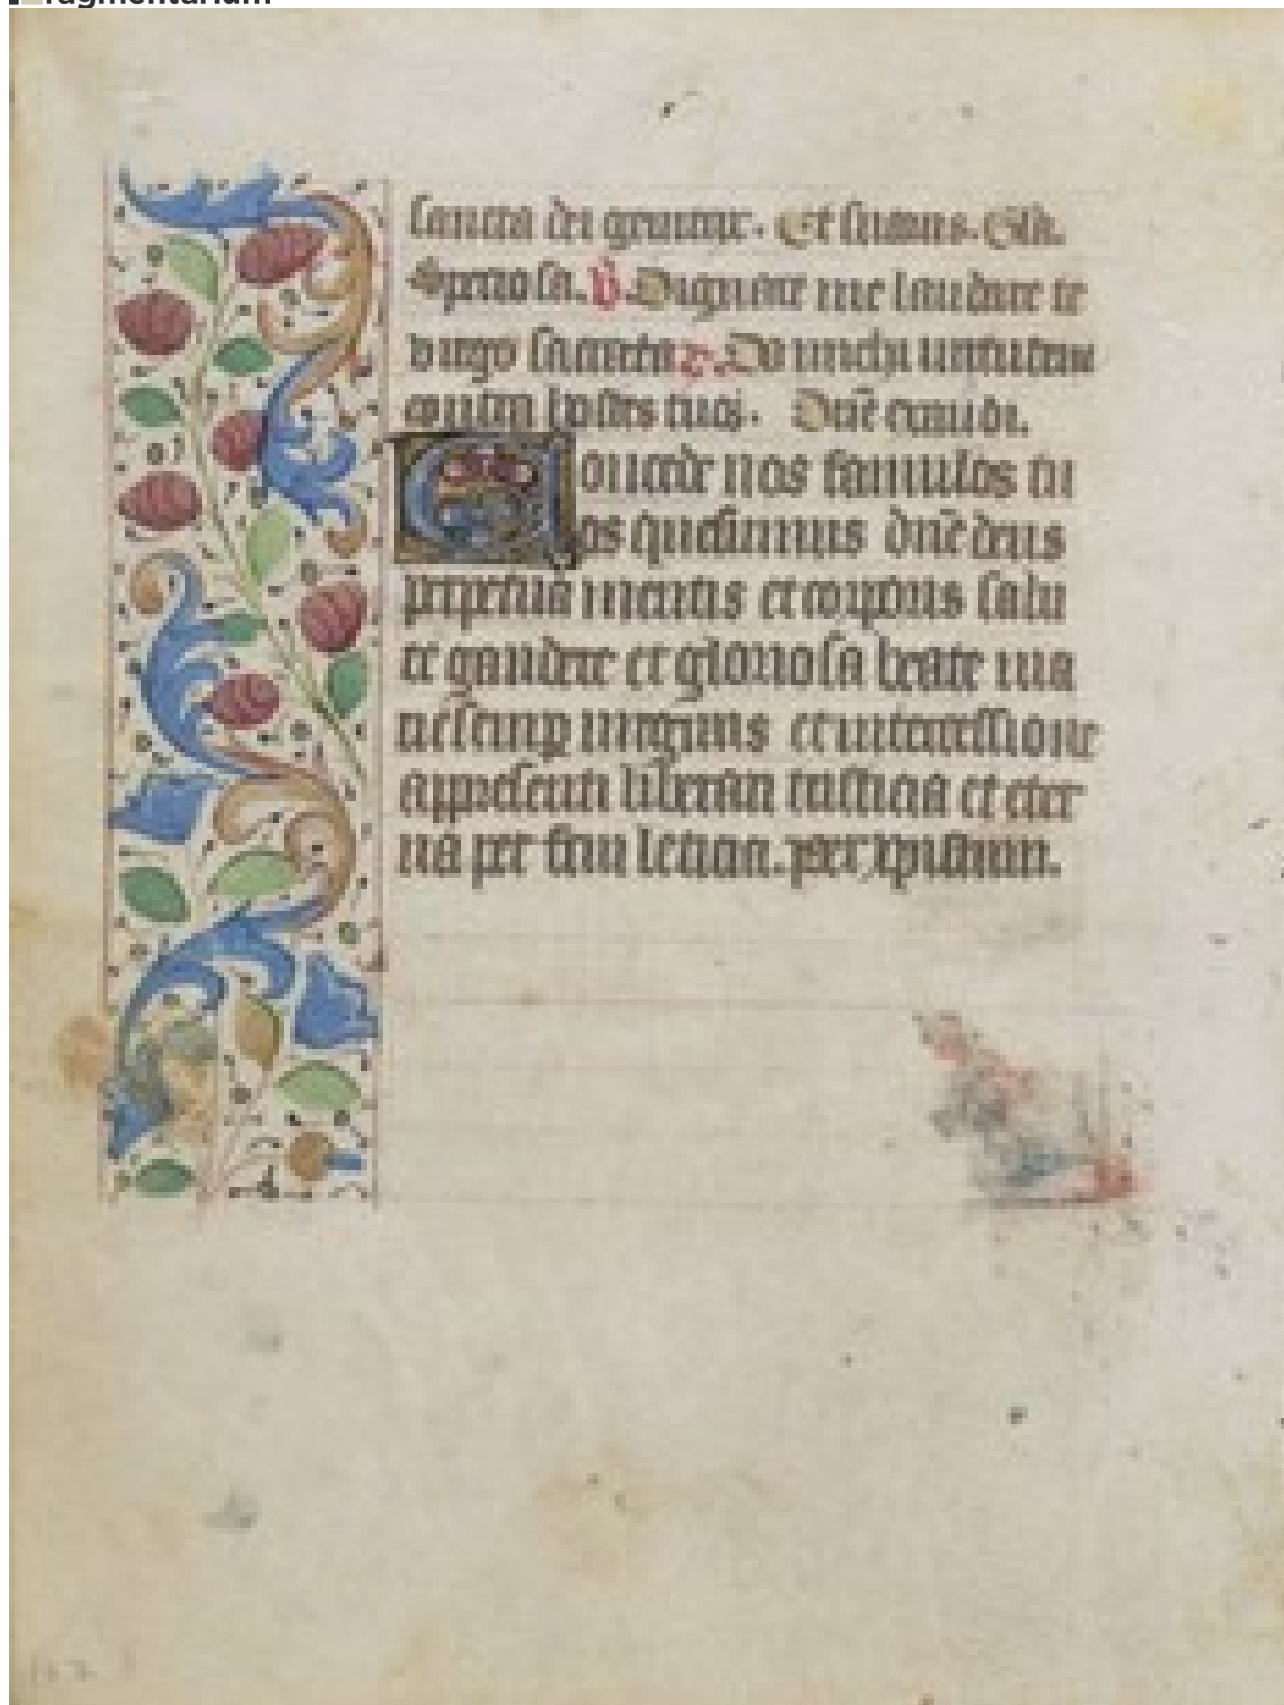 Fragmentarium
sancta dei genitrix. Et suavis. Glā.
Speciosa. v̄. Dignare me laudare te
virgo sacrata r̄. Da michi virtutem
contra hostes tuos. Dn̄e exaudi.
Concede nos famulos tu
os quesumus dn̄e deus
perpetua mentis et corporis salu
te gaudere et gloriosa beate ma
rie semp virginis et intercessione
a presenti liberari tristicia et eter
na per frui leticia. per xpistum.